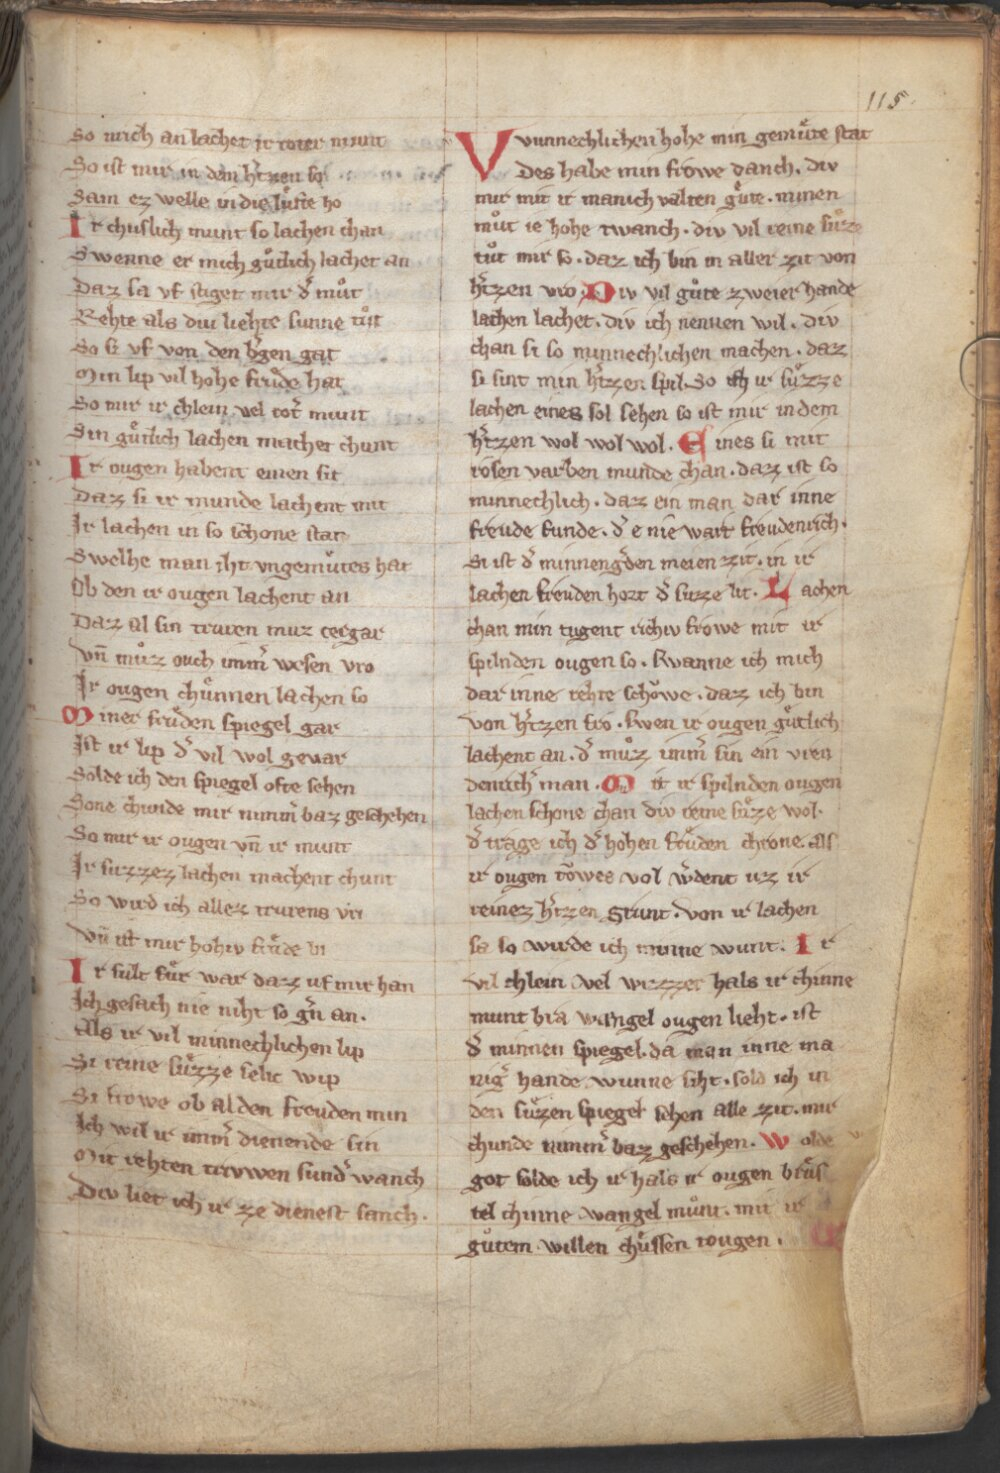 115.
So mich an lachet ir roter munt
So ist mir in dem h᷑tzen so
Sam ez welle in die lufte ho
Ir chuslich munt so lachen chan
Swenne er mich gůtlich lachet an
Daz sa vf stiget mir d᷑ můt
Rehte als diu liehte sunne tůt
So si vf von den b᷑gen gat
Min lip vil hohe frŭde hat
So mir ir chlein vel rot᷑ munt
Sin gůtlich lachen machet chunt
Ir ougen habent einen sit
Daz si ir munde lachent mit
Ir lachen in so schone stat
Swelhe man iht vngemůtes hat
Ob den ir ougen lachent an
Daz al sin truren muz zergar
Vn̄ můz ouch imm᷑ wesen vro
Ir ougen chůnnen lachen so
Miner frŭden spiegel gar
Ist ir lip d᷑ vil wol gevar
Solde ich den spiegel ofte sehen
Sone chunde mir nimm᷑ baz geschehen
So mir ir ougen vn̄ ir munt
Ir suzzez lachen machent chunt
So wird ich allez trurens vri
Vn̄ ist mir hohiv frŭde bi
Ir sult fůr war daz vf mir han
Ich gesach nie niht so g᷑n an.
Als ir vil minnechlichen lip
Si reine sůzze selic wip
Si frowe ob al den freuden min
Ich wil ir imm᷑ dienende sin
Mit rehten trivwen sund᷑ wanch
Div liet ich ir ze dienest sanch.
Vvunnechlichen hohe min gemůte stat
Des habe min frowe danch. div
mir mit ir manich valten gůte. minen
můt ie hohe twanch. div vil reine sůze
tůt mir so. daz ich bin in aller zit von
h᷑tzen vro. Div vil gůte zweier hande
lachen lachet. div ich nennen wil. div
chan si so minnechlichen machen. daz
si sint min h᷑tzen spil. So ich ir sůzze
lachen eines sol sehen so ist mir in dem
h᷑tzen wol wol wol. Eines si mit
rosen varben munde chan. daz ist so
minnechlich. daz ein man dar inne
freude funde. d᷑ e nie wart freudenrich.
Si ist d᷑ minneng᷑den meien zit. in ir
lachen freuden hort d᷑ suze lit. Lachen
chan min tugent richiv frowe mit ir
spilnden ougen so. swanne ich mich
dar inne rehte schŏwe. daz ich bin
von h᷑tzen fro. swen ir ougen gůtlich
lachent an. d᷑ můz imm᷑ sin ein vreu
denrich᷑ man. Mit ir spilnden ougen
lachen schone chan div reine sůze wol.
d᷑ trage ich d᷑ hohen frŭden chrone. als
ir ougen tŏwes vol w᷑dent uz ir
reinez h᷑tzen grunt. von ir lachen
sa so wirde ich minne wunt. Ir
vil chlein vel wizzer hals ir chinne
munt bra wangel ougen lieht. ist
d᷑ minnen spiegel. da man inne ma
nig᷑ hande wunne siht. sold ich in
den sůzen spiegel sehen alle zit. mir
chunde nimm᷑ baz geschehen. Wolde
got solde ich ir hals ir ougen brůs
tel chinne wangel můnt. mit ir
gůtem willen chůssen tougen.